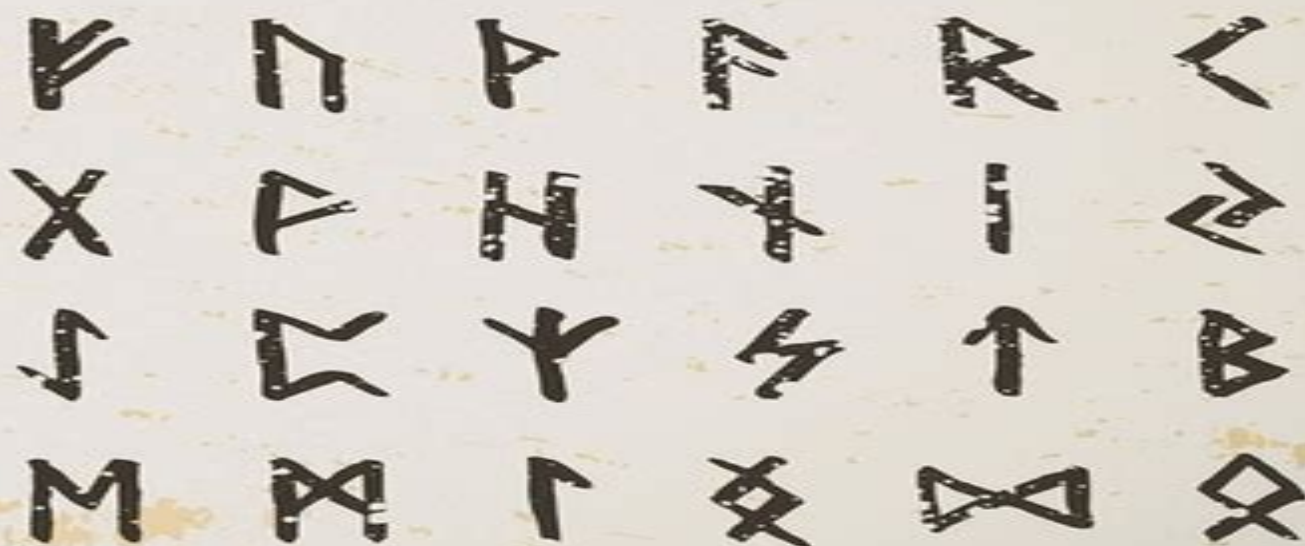 ᚠ ᚢ ᚦ ᚨ ᚱ ᚲ
ᚷ ᚹ ᚺ ᚾ ᛁ ᛃ
ᛇ ᛈ ᛉ ᛊ ᛏ ᛒ
ᛖ ᛗ ᛚ ᛝ ᛞ ᛟ